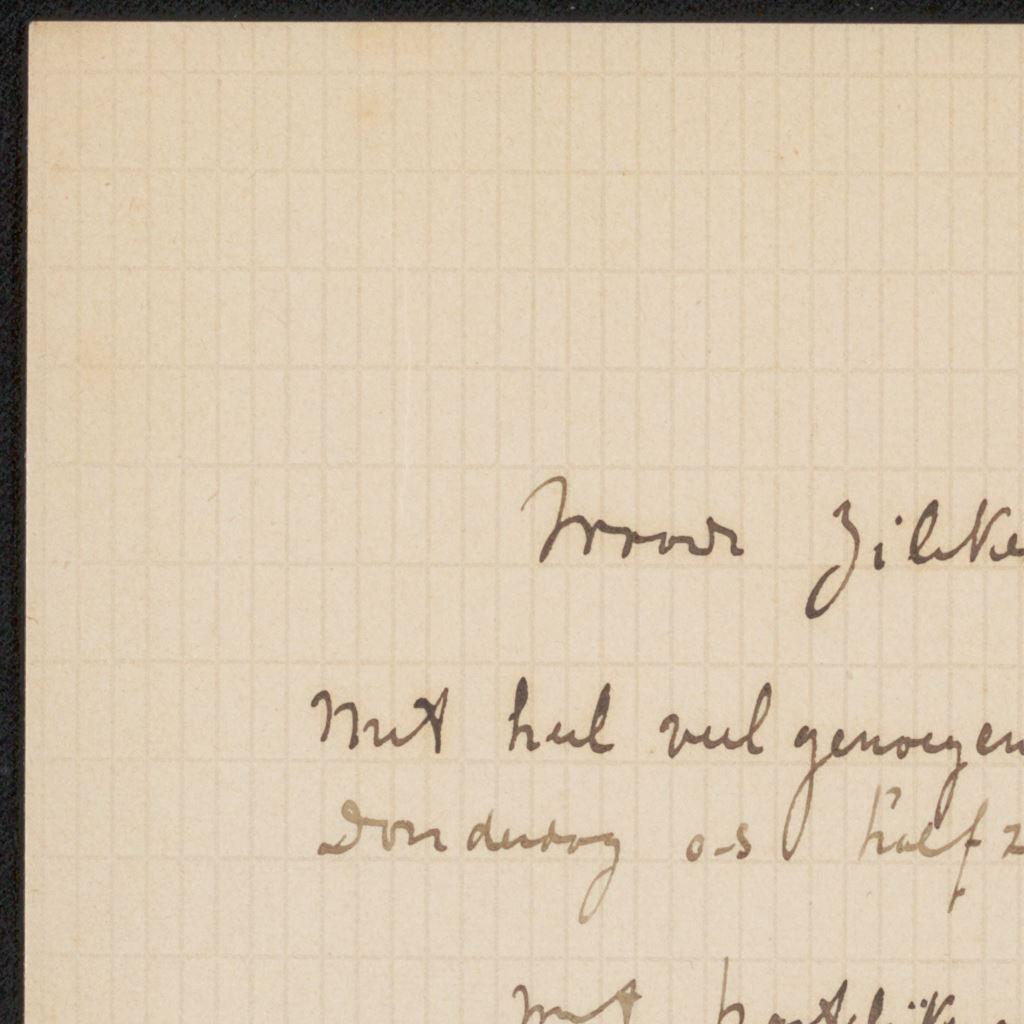 Waarde Zilcke
Met heel veel genoegen
Donderdag a-s half z
Met hartelijke